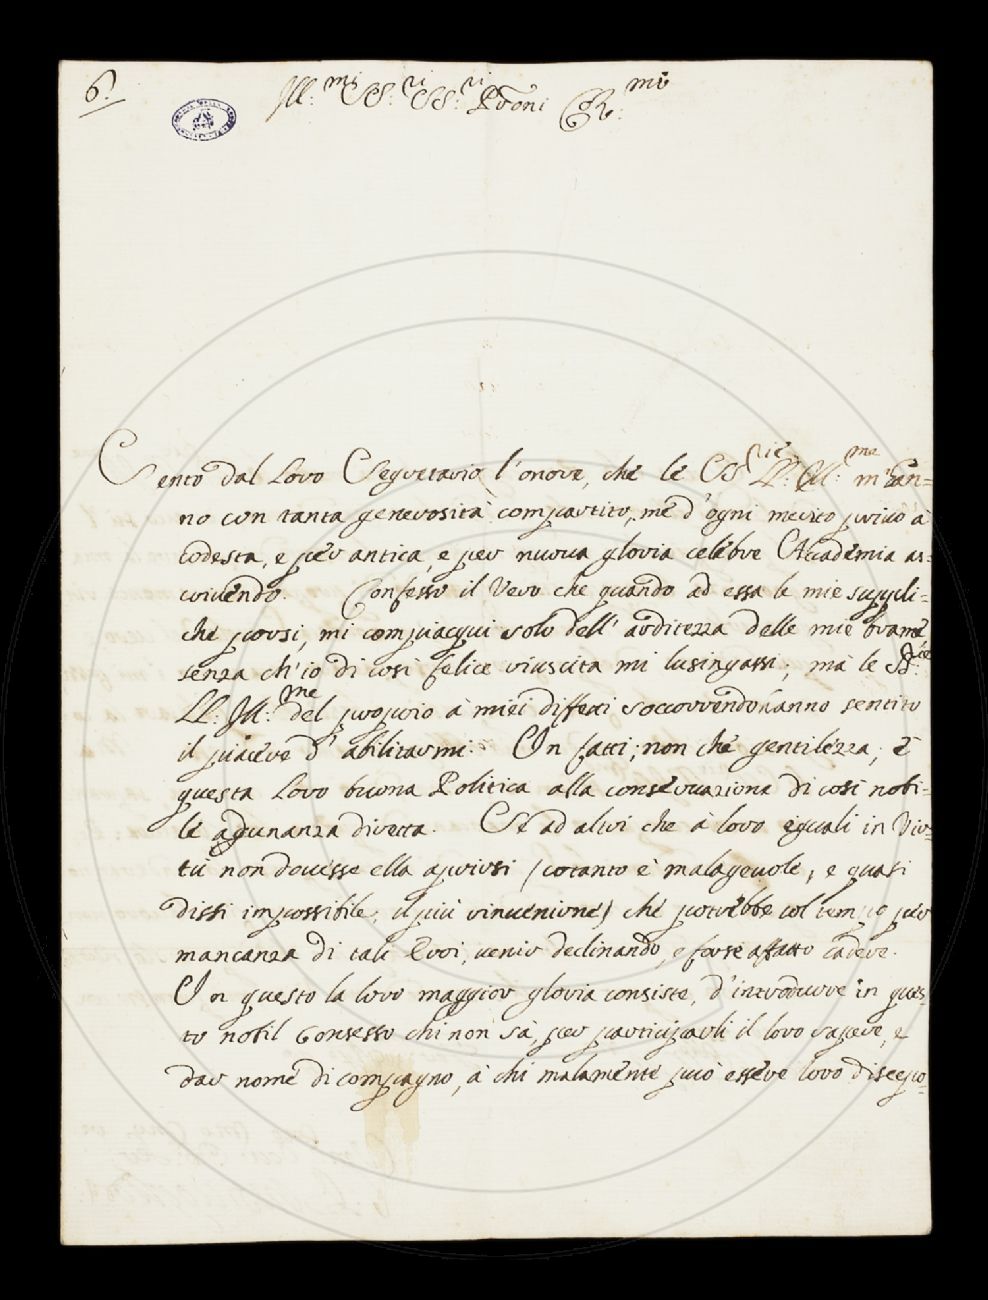 6.
Ill:mi SS:ri SS:ri Proni Co:mi
Sento dal Loro Segretario l'onore, che le SSrie LL: Ill:me m'han=
no con tanta generosità compartito, me d'ogni merito privo à
codesta, e per antica, e per nuova gloria celebre Accademia as=
crivendo. Confesso il Vero che quando ad essa le mie suppli=
che porsi, mi compiacqui solo dell' arditezza delle mie brame
senza ch'io di così felice riuscita mi lusingassi; mà le SS:rie
LL: Ill:me del proprio à miei difetti soccorrendo hanno sentito
il piacere d' abilitarmi. In fatti, non che gentilezza, è
questa Loro buona Politica alla conservaziona di così nobi=
le adunanza diretta. Se ad altri che à loro eguali in Vir=
tù non dovesse ella aprirsi (cotanto è malagevole, e quasi
dissi impossibile, il più rinvenirne) che potrebbe col tempo per
mancanza di tali Eroi, venir declinando, e forse affatto cadere.
In questo la loro maggior gloria consiste, d'introdurre in ques=
to nobil Consesso chi non sà, per participarli il loro sapere, e
dar nome di compagno, à chi malamente può essere loro discepo=